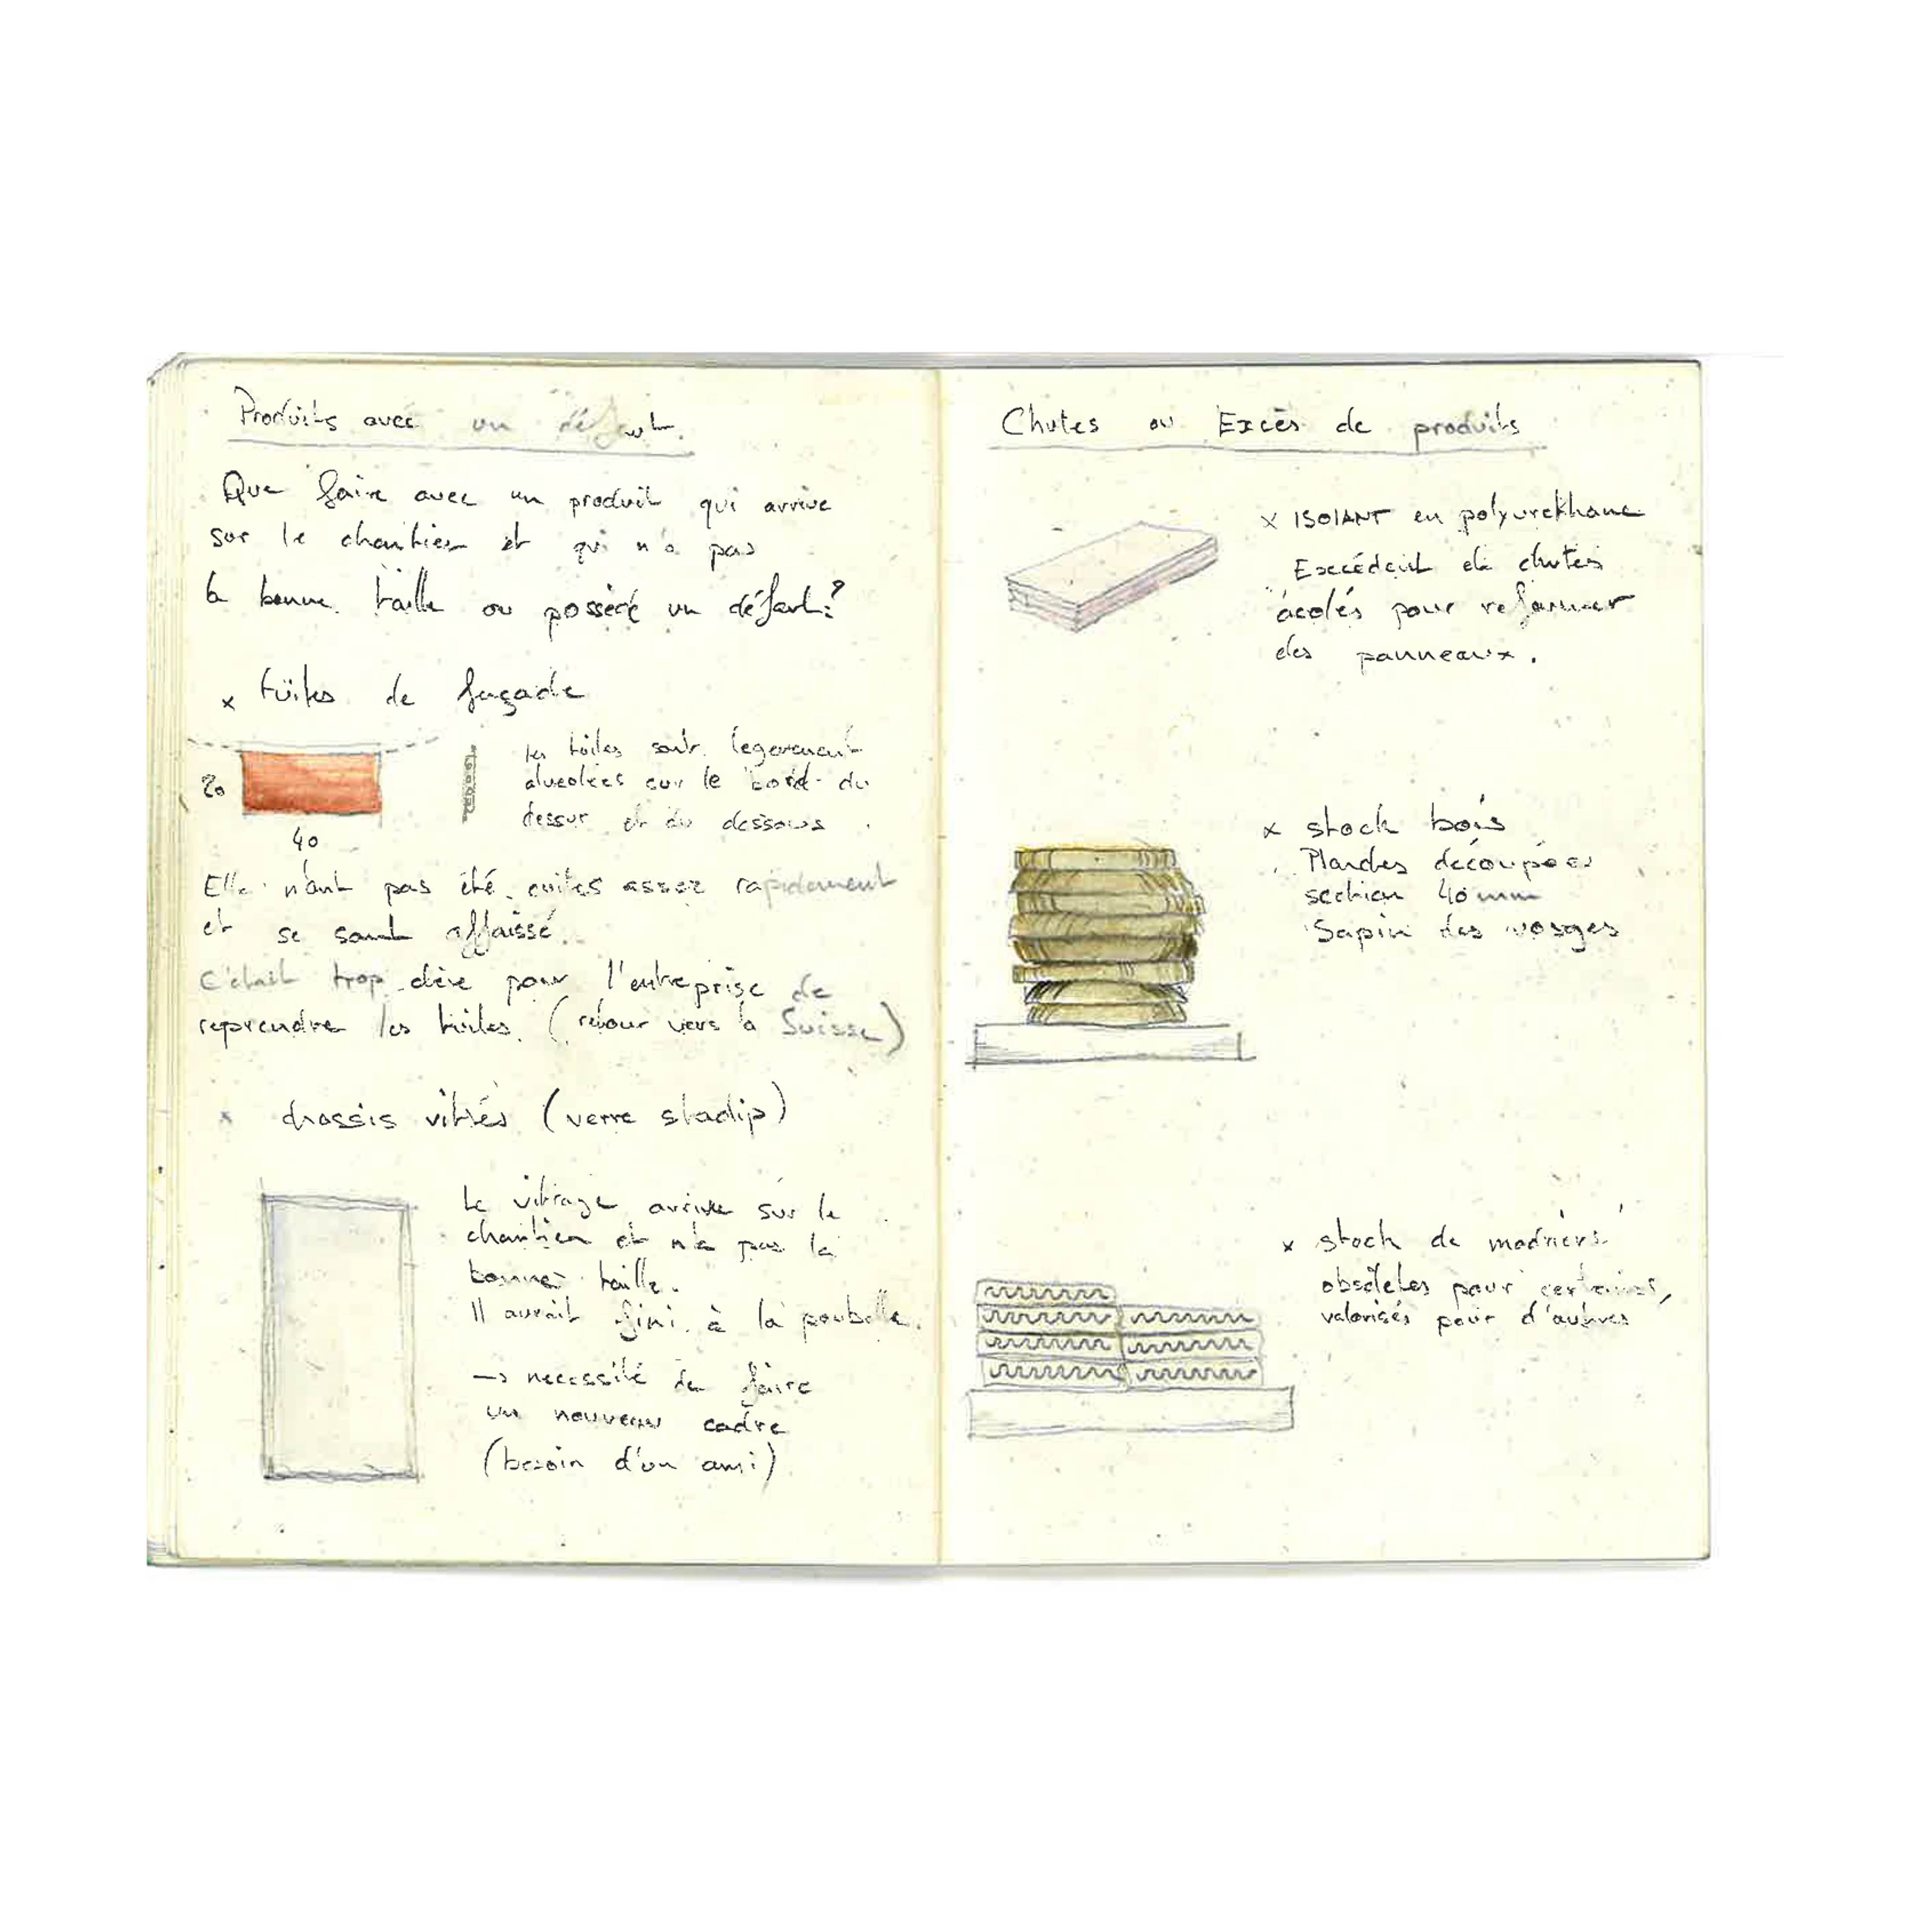 Produits avec un défaut.
Que faire avec un produit qui arrive
sur le chantier et qui n'a pas
la bonne taille ou possède un défaut?
x tuiles de façade
les tuiles sont légerement
alveolées sur le bord du
dessus et du dessous.
20
40
Elle n'ont pas été cuites assez rapidement
et se sont affaissé.
C'était trop chère pour l'entreprise de
reprendre les tuiles. (retour vers la Suisse)
x chassis vitrés (verre stadip)
Le vitrage arrive sur le
chantier et n'a pas la
bonne taille.
Il aurait fini à la poubelle.
-> necessité de faire
un nouveau cadre
(besoin d'un ami)
Chutes ou Excès de produits
x ISOLANT en polyurethane
Excédent de chutes
acolés pour reformer
des panneaux.
x stock bois
Planches découpées
section 40 mm
Sapin des vosges
x stock de madriers
obsolètes pour certains,
valorisés pour d'autres